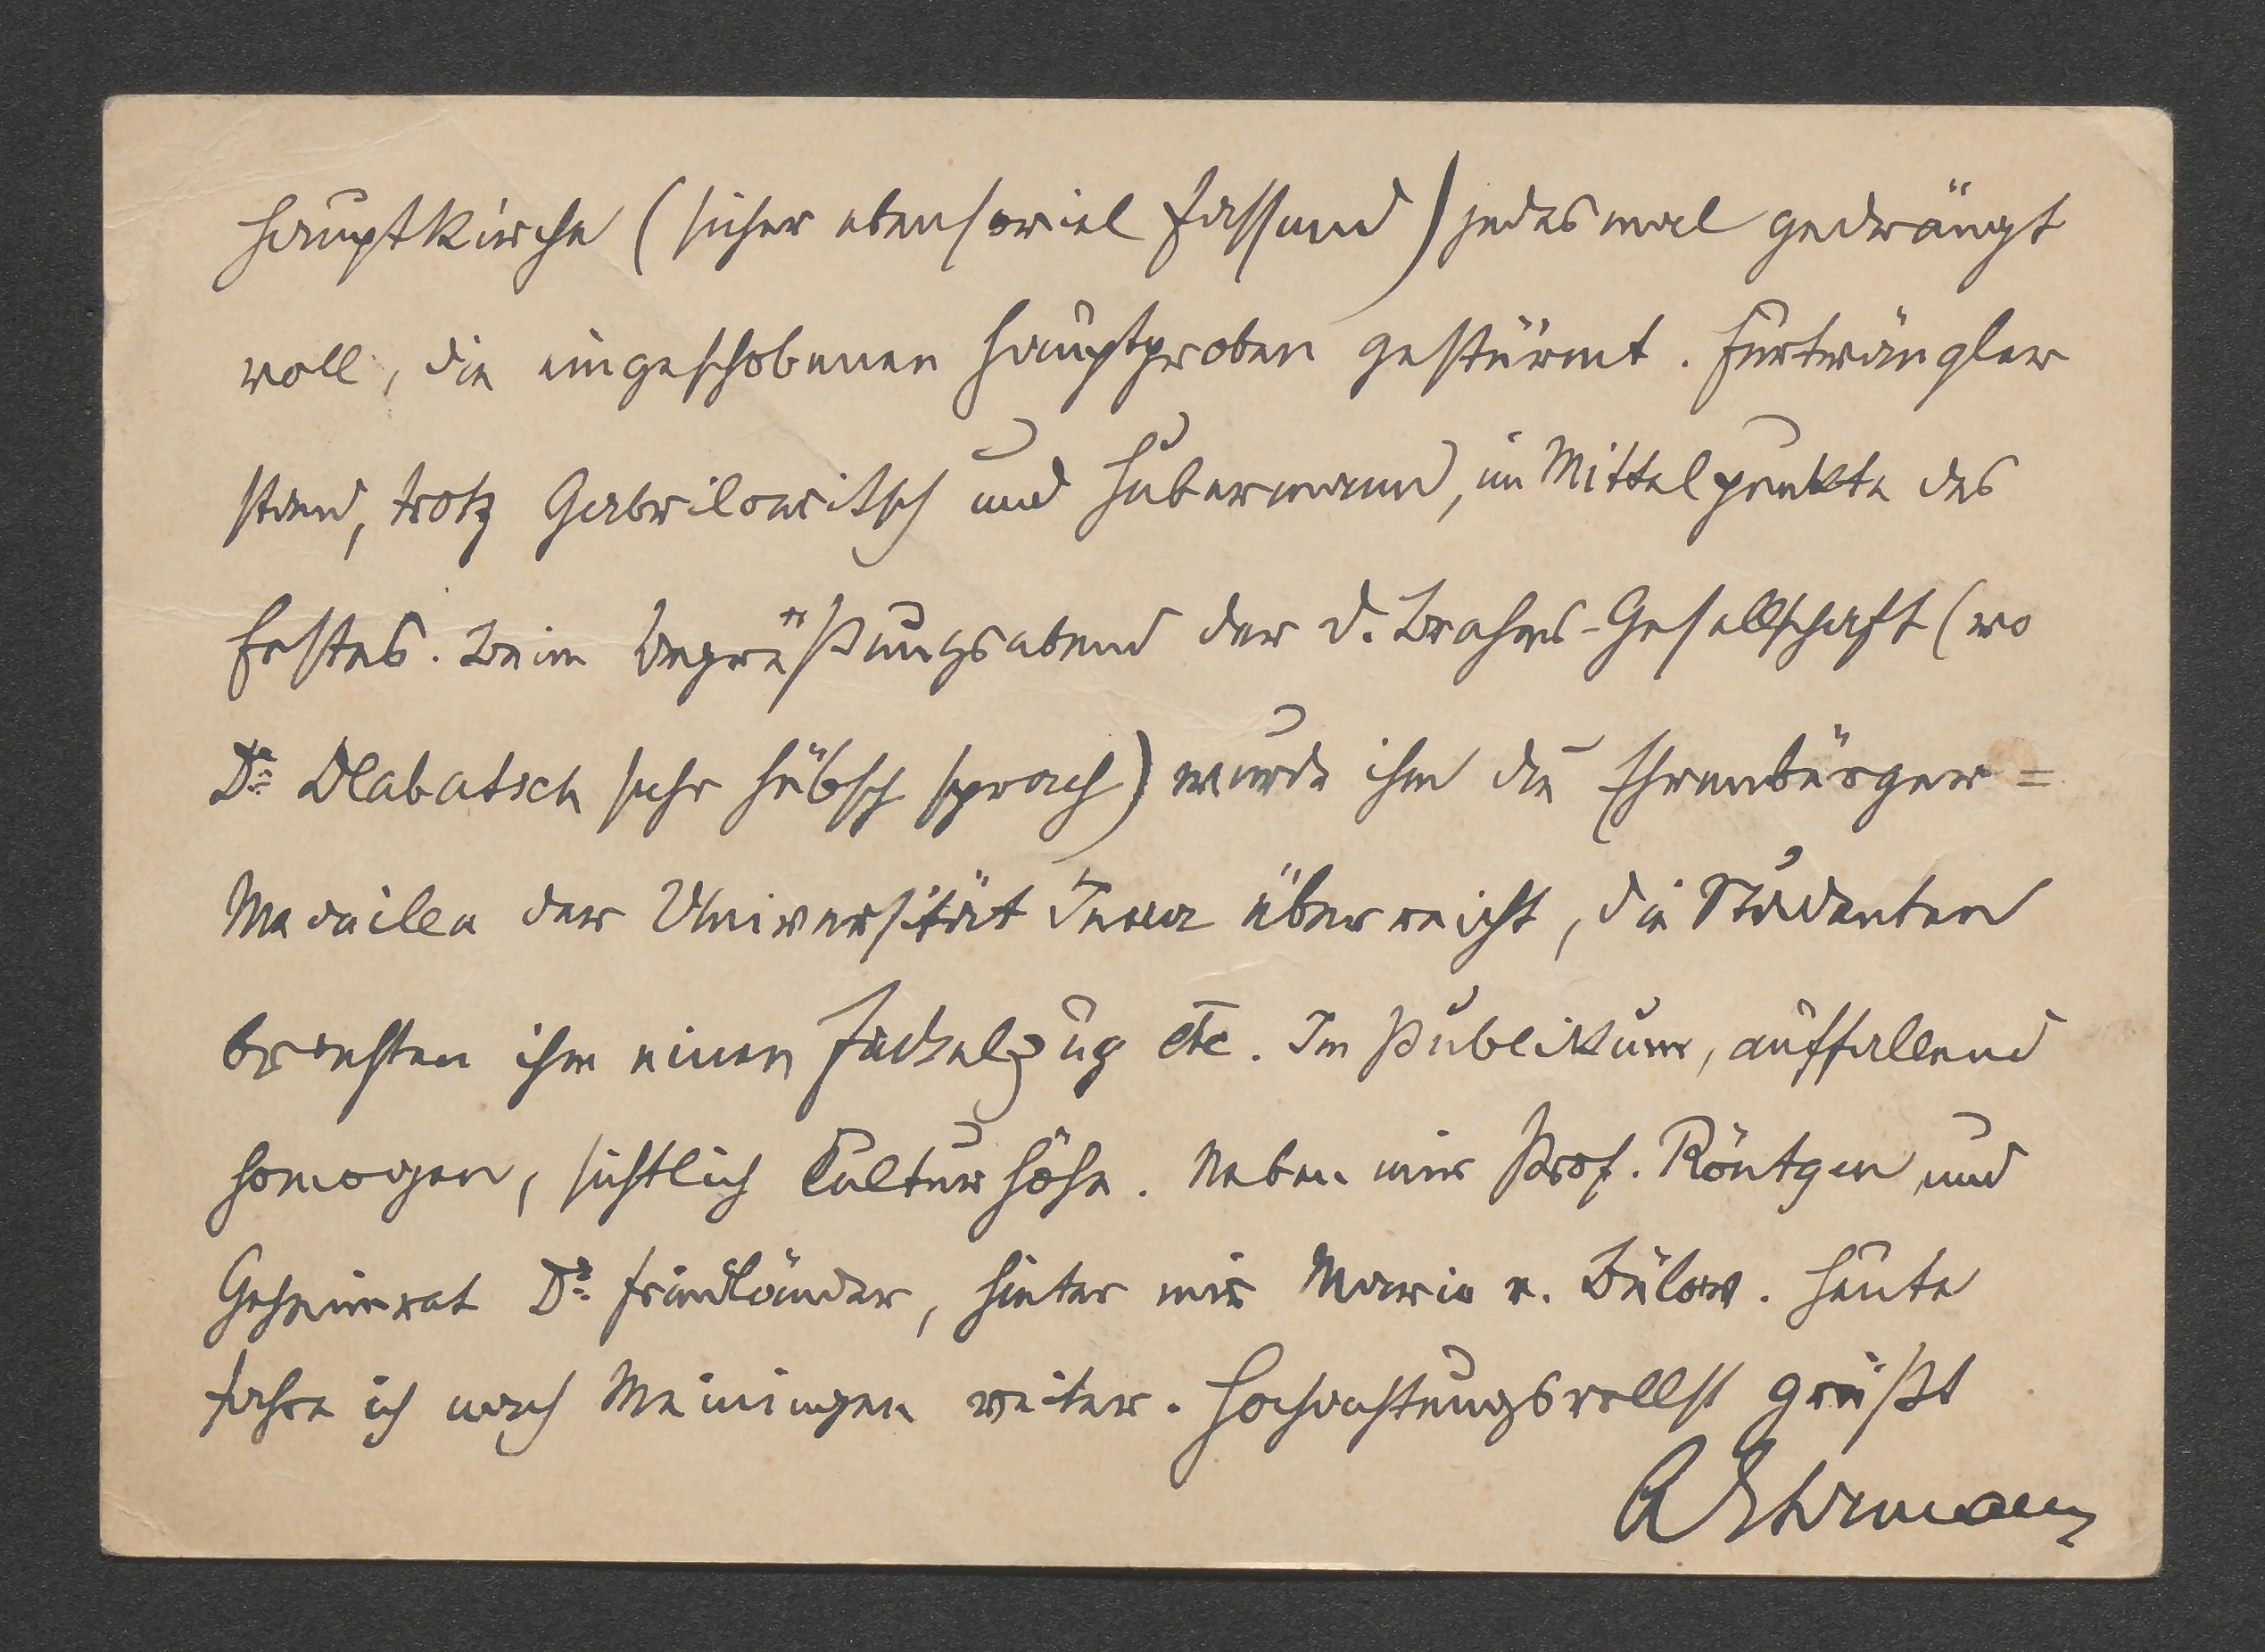 Hauptkirche (sicher ebensoviel fassend) jedesmal gedrängt
voll, die eingeschobenen Hauptproben gestürmt. Furtwängler
stand, trotz Gabrilowitsch und Hubermann, im Mittelpunkte des
Festes. Beim Begrüßungsabend der D. Brahms-Gesellschaft (wo
Dr. Dlabatsch sehr hübsch sprach) wurde ihm die Ehrenbürger=
Medaille der Universität Jena überreicht, die Studenten
brachten ihm einen Fackelzug etc. Im Publikum, auffallend
homogen, sichtlich Culturhöhe. Neben mir Prof. Röntgen und
Geheimrat Dr. Friedländer, hinter mir Marie v. Bülow. Heute
fahre ich nach Meiningen weiter. Hochachtungsvollst grüßt
AEhrmann